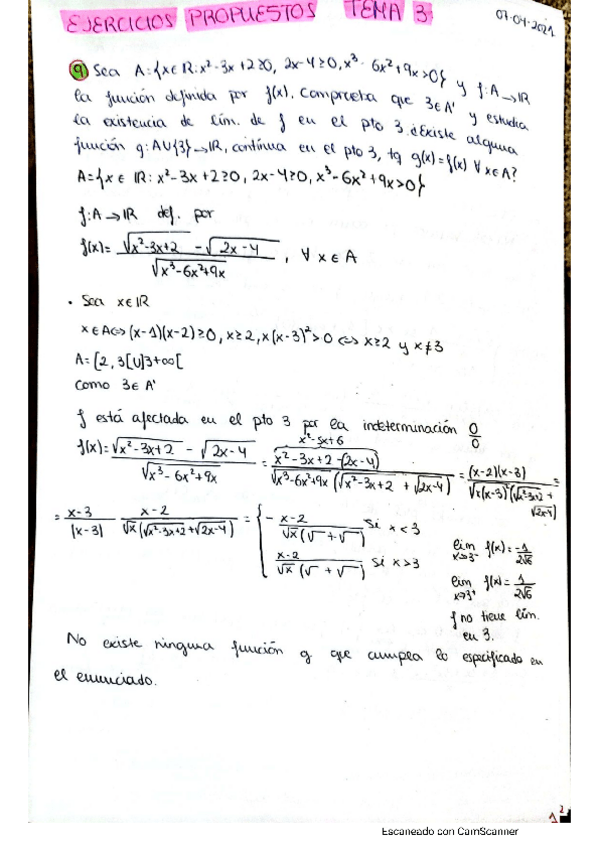 EJERCICIOS PROPUESTOS TEMA 3
07-04-2021
9 Sea A={x∈IR: x²-3x+2≥0, 2x-4≥0, x³-6x²+9x>0} y f:A→IR
la función definida por f(x). Comprueba que 3∈A' y estudia
la existencia de lím. de f en el pto 3. ¿Existe alguna
función g: AU{3}→IR, contínua en el pto 3, tq g(x)=f(x) ∀x∈A?
A={x∈IR: x²-3x+2≥0, 2x-4≥0, x³-6x²+9x>0}
f:A→IR def. por
f(x)= (√(x²-3x+2) - √(2x-4)) / √(x³-6x²+9x), ∀x∈A
• Sea x∈IR
x∈A⇔(x-1)(x-2)≥0, x≥2, x(x-3)²>0 ⇔ x≥2 y x≠3
A=[2,3[U]3+∞[
Como 3∈A'
f está afectada en el pto 3 por la indeterminación 0/0
x²-5x+6
f(x)= (√(x²-3x+2) - √(2x-4)) / √(x³-6x²+9x) = (x²-3x+2-(2x-4)) / (√(x³-6x²+9x) (√(x²-3x+2) + √(2x-4))) = (x-2)(x-3) / (√(x(x-3)²) (√(x²-3x+2) + √(2x-4))) =
= (x-3)/|x-3| (x-2)/(√x(√(x²-3x+2)+√(2x-4))) = { - (x-2)/(√x(√+√)) si x<3
(x-2)/(√x(√+√)) si x>3
lím x→3⁻ f(x)= -1/(2√6)
lím x→3⁺ f(x)= 1/(2√6)
f no tiene lím.
en 3.
No existe ninguna función g que cumpla lo especificado en
el enunciado.
Escaneado con CamScanner